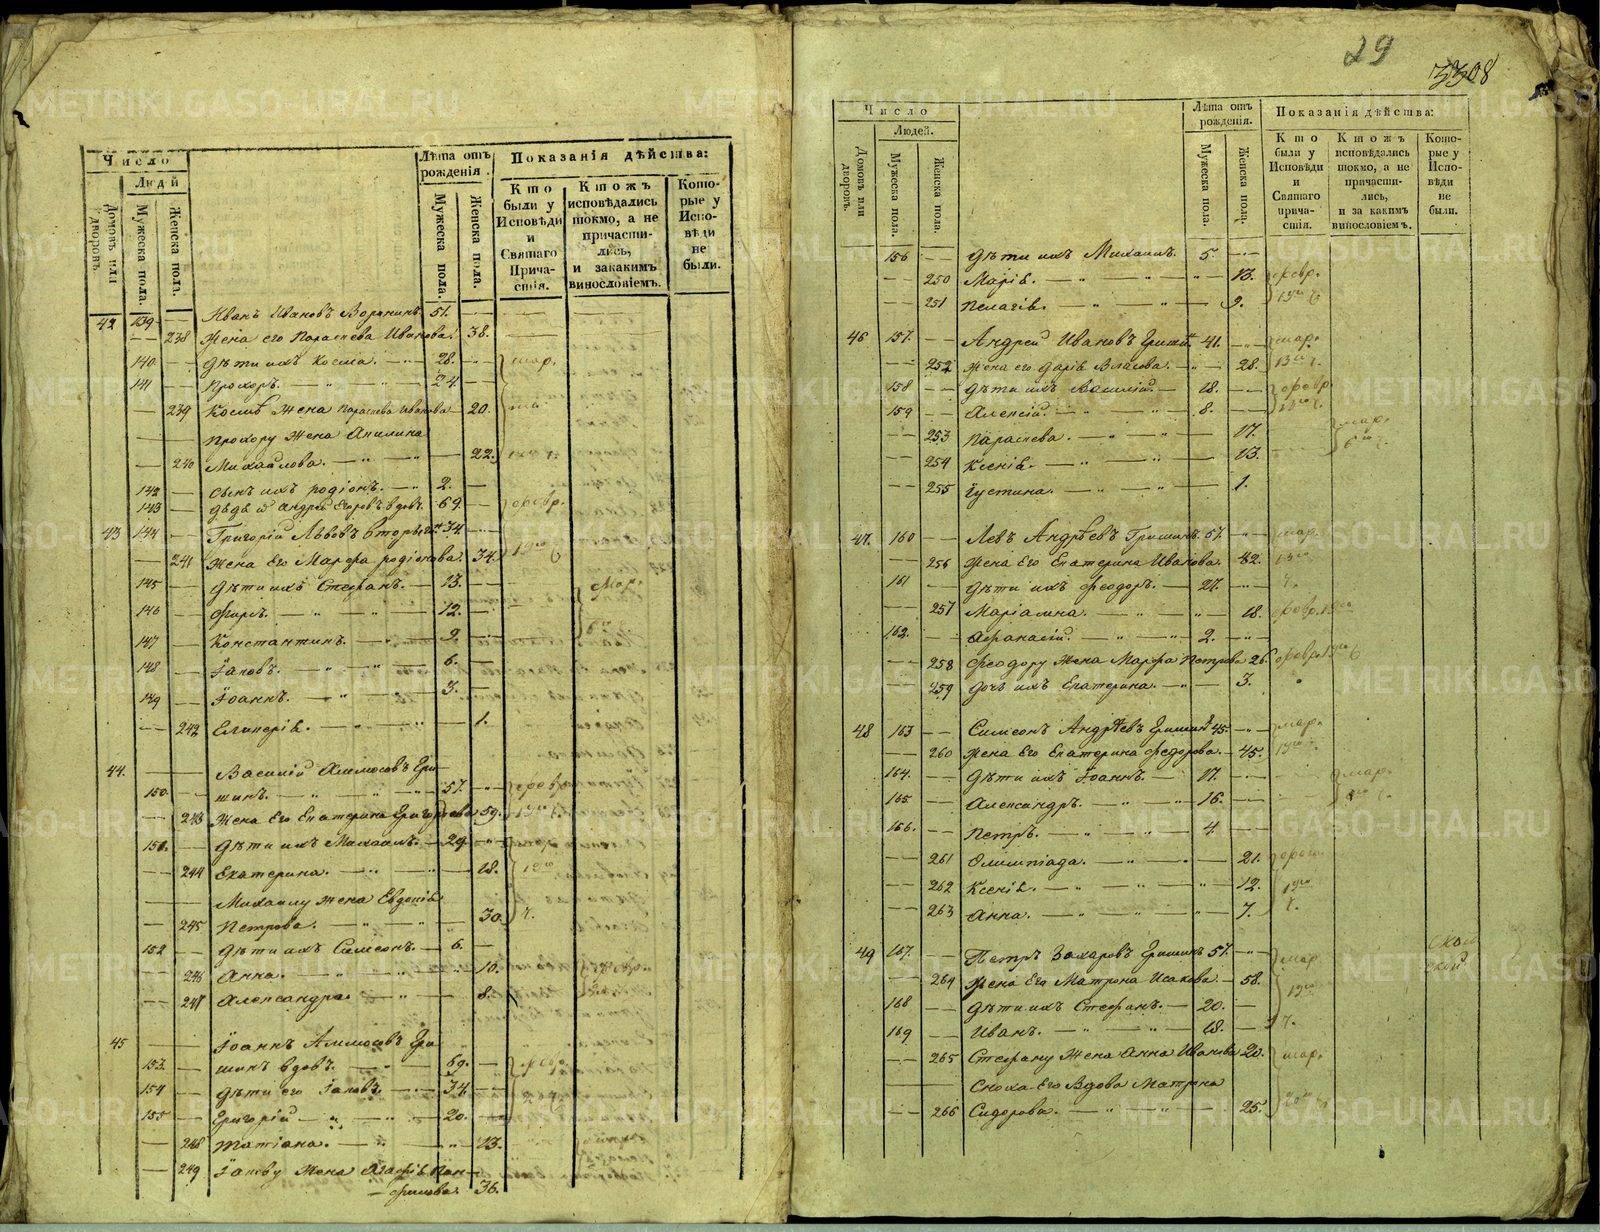 Число
Людй
Домовъ или дворовъ.
Мужеска пола.
Женска пола.
Лѣта отъ рожденія.
Мужеска пола.
Женска пола.
Показанія дѣйства:
Кто были у Исповѣди и Святаго Прича-стія.
Ктожъ исповѣдались токмо, а не причасти-лись, и закакимъ винословіемъ.
Кото-рые у Испо-вѣди не были.
42 139 — Иванъ Ивановъ 51.
— — 238 Жена его Параскева Иванова. 38.
140 — дѣти ихъ Косма. — 28. мар.
141 — Прохоръ. — " — 24.
— 239 Космѣ Жена Параскева Иванова 20.
Прохору Жена Акилина
— 240 Михайлова. — " — 22.
142 — сынъ ихъ родіонъ. — 2.
143 — дѣдъ Андрей Егоровъ вдовъ. 69. февр.
43 144 — Григорій Львовъ 34.
— 241 Жена Его Марфа родіонова. 34.
145 — дѣти ихъ Стефанъ. — 13. Мар.
146 — Фирсъ. — " — 12.
147 — Константинъ. — 9.
148 — Іаковъ. — " — 6.
149 — Іоаннъ. — " — 3.
— 242 Еликерія. — " — 1.
44. Василій Аммосовъ Гри-
150. — шинъ. — " — 57. февр.
— 243 Жена Его Екатерина Григорьева 59.
151. — дѣти ихъ Михаилъ. — 29
— 244 Екатерина. — " — 18.
Михаилу жена Евдокія
— 245 Петрова. — " — 30.
152 — дѣти ихъ Симеонъ. — 6.
— 246 Анна. — " — 10.
— 247 Александра. — " — 8.
45 Іоаннъ Аммосовъ Гри
153. — шинъ вдовъ. — 69. февр.
154 — дѣти его Іаковъ. — 34.
155 — Григорій — " — 20.
— 248 Татіана. — " — 13.
— 249 Іакову Жена Агафія Пан-
филова. 36.
29
3308
Число
Людей.
Домовъ или дворовъ.
Мужеска пола.
Женска пола.
Лѣта отъ рожденія.
Мужеска пола.
Женска пола.
Показанія дѣйства:
Кто были у Исповѣди и Святаго прича-стія.
Ктожъ исповѣдались токмо, а не причасти-лись, и за какимъ винословіемъ.
Кото-рые у Испо-вѣди не были.
156 — дѣти ихъ Михаилъ. 5.
— 250 Марія. — " — 13. февр.
— 251 Пелагія. — " — 9.
46 157. — Андрей Ивановъ Гришинъ 41. мар.
— 252 Жена его Дарія Власова. 28.
158 — дѣти ихъ Василій. — 18. февр.
159 — Алексій. — " — 8.
— 253 Параскева. — " — 17. мар.
— 254 Ксенія. — " — 13.
— 255 Іустина. — " — 1.
47. 160 — Левъ Андрѣевъ Гришинъ. 51. мар.
— 256 Жена Его Екатерина Иванова. 42.
161 — дѣти ихъ Феодоръ. — 27.
— 257 Маріамна. — " — 18. февр.
162. — Афанасій. — " — 2.
— 258 Феодору Жена Марфа Петрова 26. февр.
— 259 Дочь ихъ Екатерина. — 3.
48 163 — Симеонъ Андрѣевъ Гришинъ 45. мар.
— 260 Жена Его Екатерина Федорова. — 45.
164. — дѣти ихъ Іоаннъ. — 17. мар.
165. — Александръ. — " — 16.
166. — Петръ. — " — 4.
— 261 Олимпіада. — " — 21.
— 262 Ксенія. — " — 12.
— 263 Анна. — " — 7.
49 167. — Петръ Захаровъ Гришинъ 57. мар.
— 264 Жена Его Матрона Исакова. — 58.
168 — дѣти ихъ Стефанъ. — 20.
169 — Иванъ. — " — 18.
— 265 Стефану Жена Анна Иванова 20. мар.
Сноха Его Вдова Матрона
— 266 Сидорова. — " — 25.
METRIKI.GASO-URAL.RU